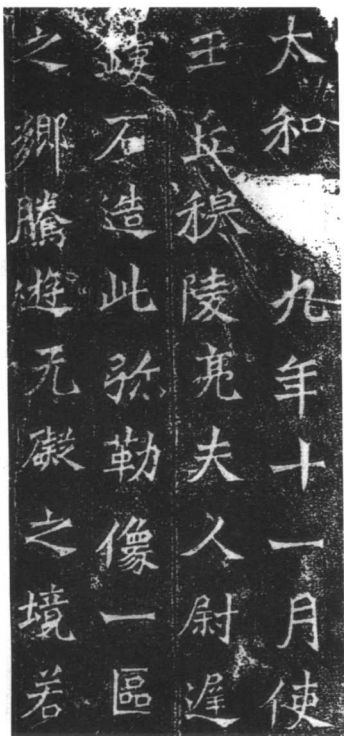 太和 九年十一月使
王丘穆陵亮夫人尉遲
鏤石造此弥勒像一區
之鄉騰遊无礙之境若